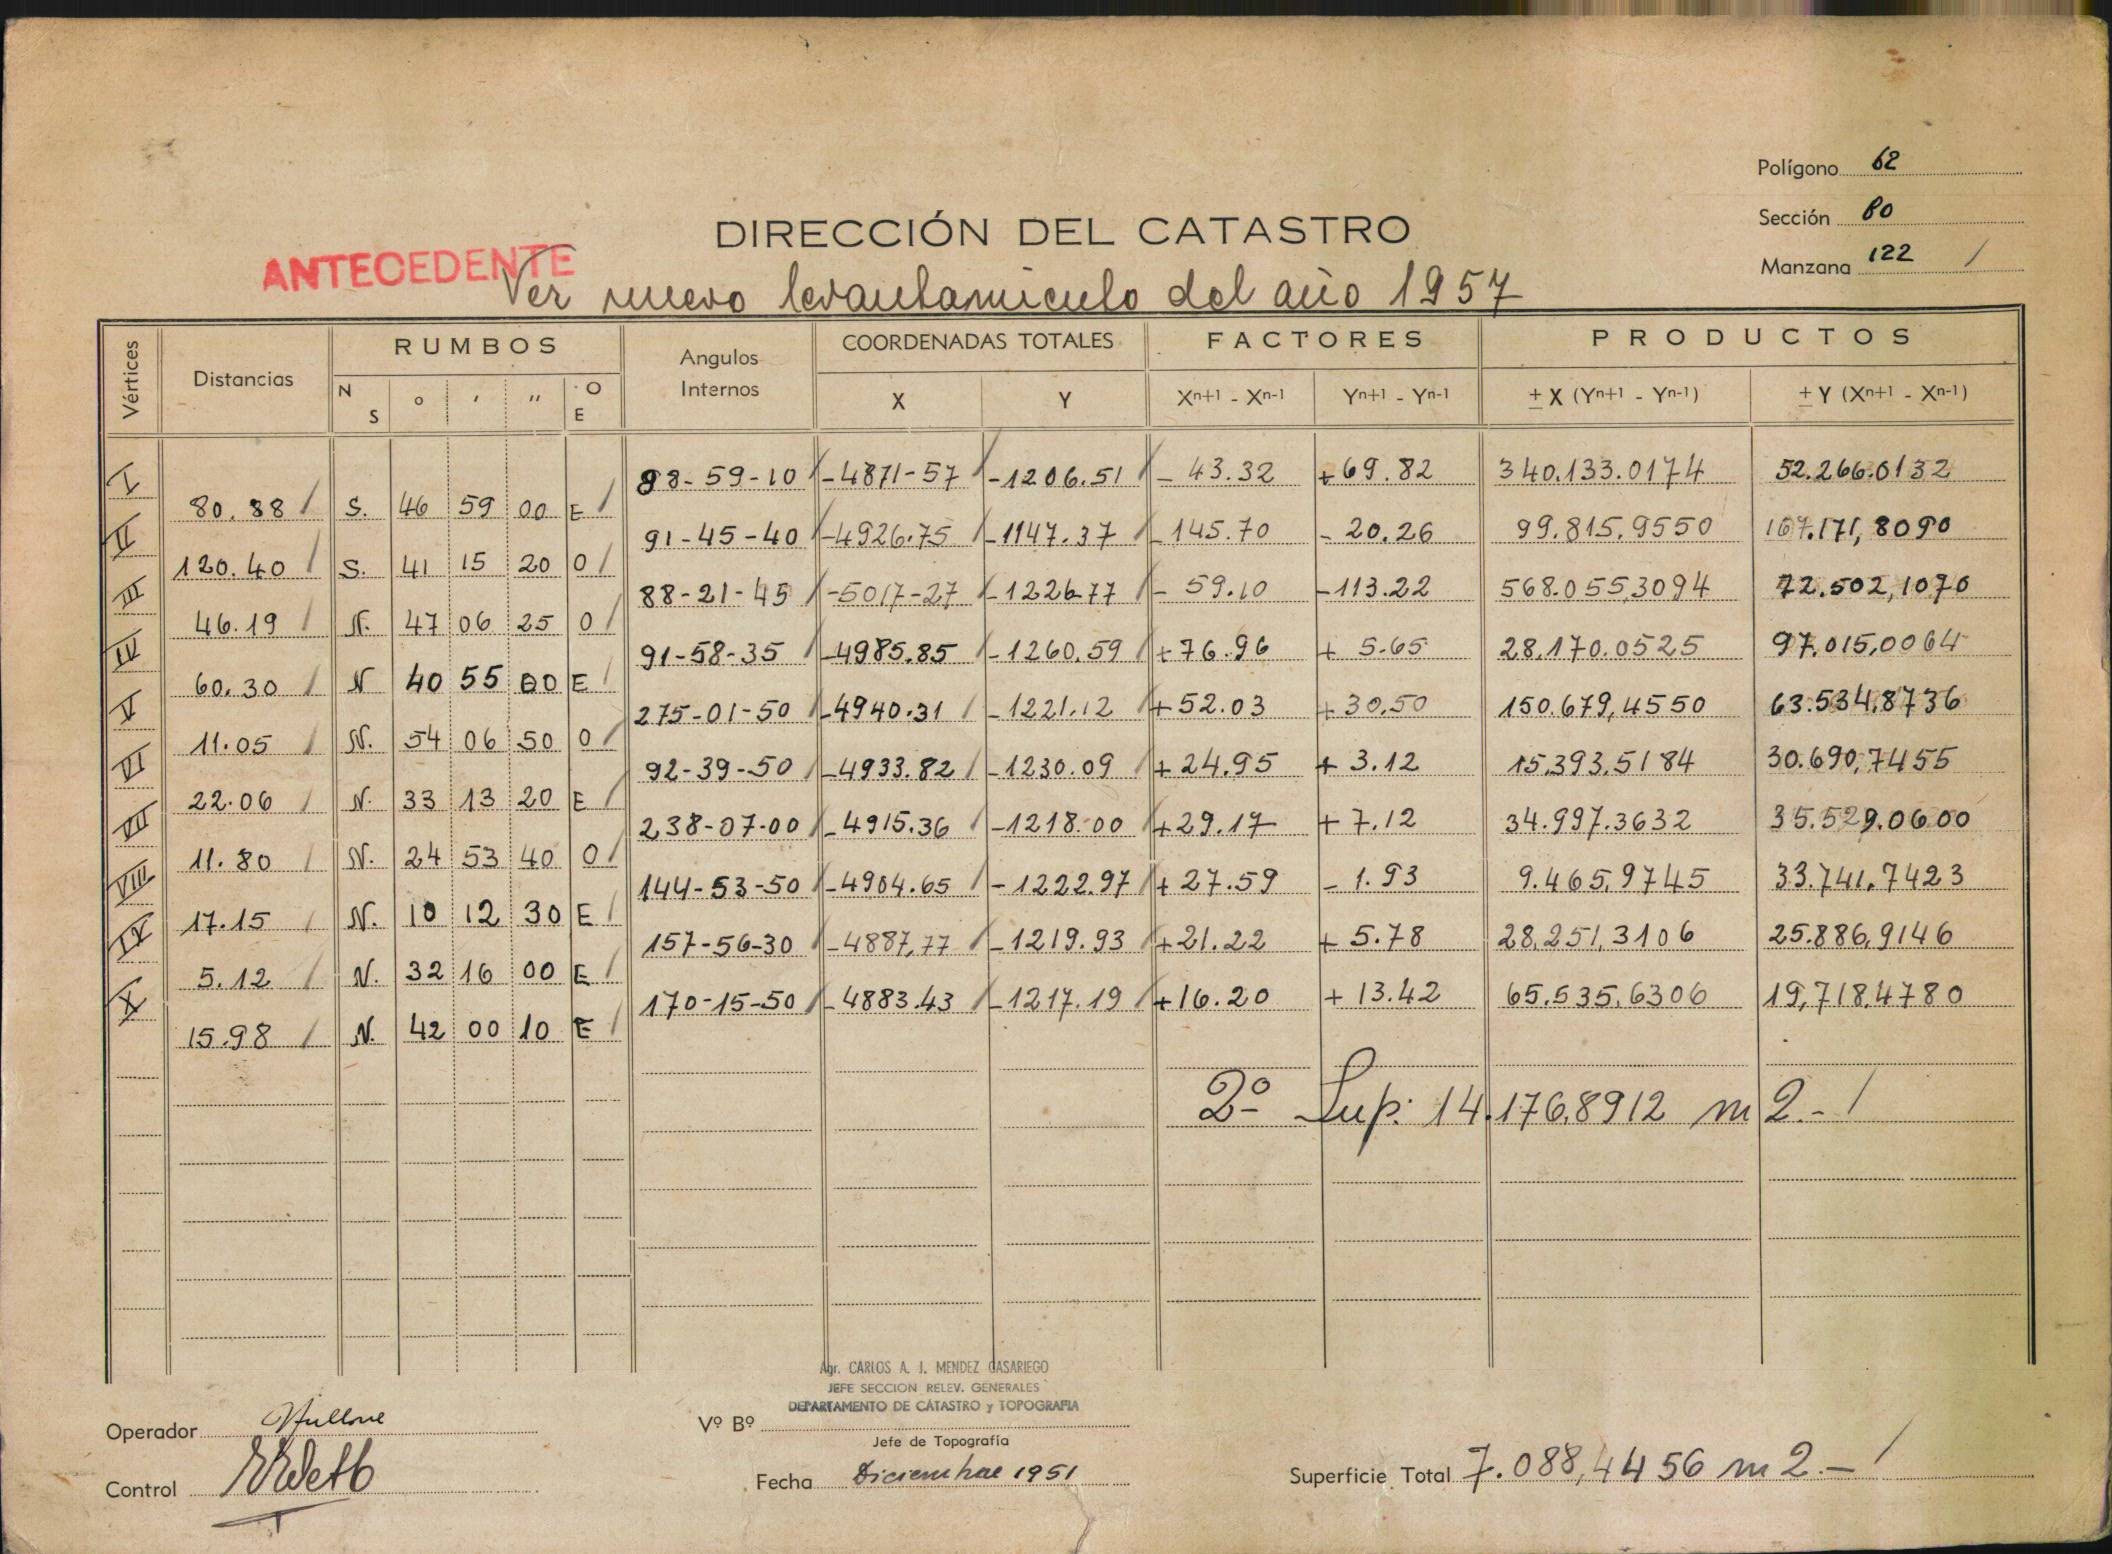 Polígono 62
Sección 80
Manzana 122 /
DIRECCIÓN DEL CATASTRO
ANTECEDENTE
Ver nuevo levantamiento del año 1957
Vértices Distancias RUMBOS Angulos Internos COORDENADAS TOTALES FACTORES PRODUCTOS
N S ° ' '' O E X Y Xn+1 - Xn-1 Yn+1 - Yn-1 ± X (Yn+1 - Yn-1) ± Y (Xn+1 - Xn-1)
I 88-59-10 / -4871-57 / -1206.51 / - 43.32 + 69.82 340.133.0174 52.266.0132
80.88 / S. 46 59 00 E /
II 91-45-40 / -4926.75 / -1147.37 / - 145.70 - 20.26 99.815,9550 167.171,8090
120.40 / S. 41 15 20 O /
III 88-21-45 / -5017-27 / -1226.77 / - 59.10 -113.22 568.055,3094 72.502,1070
46.19 / N. 47 06 25 O /
IV 91-58-35 / -4985.85 -1260.59 / +76.96 + 5.65 28.170.0525 97.015,0064
60.30 / N 40 55 00 E /
V 275-01-50 / -4940.31 / -1221.12 / +52.03 +30.50 150.679,4550 63.534,8736
11.05 / N. 54 06 50 O /
VI 92-39-50 / -4933.82 / -1230.09 / +24.95 + 3.12 15.393,5184 30.690,7455
22.06 / N. 33 13 20 E /
VII 238-07-00 / -4915.36 / -1218.00 / +29.17 + 7.12 34.997.3632 35.529.0600
11.80 / N. 24 53 40 O /
VIII 144-53-50 / -4904.65 / -1222.97 / +27.59 - 1.93 9.465,9745 33.741.7423
17.15 / N. 10 12 30 E /
IX 157-56-30 / -4887,77 / -1219.93 / +21.22 + 5.78 28.251,3106 25.886,9146
5.12 / N. 32 16 00 E /
X 170-15-50 / -4883.43 / -1217.19 / +16.20 + 13.42 65.535,6306 19,718.4780
15.98 / N. 42 00 10 E /
2º Sup: 14.176,8912 m2.- /
Agr. CARLOS A. J. MENDEZ CASARIEGO
JEFE SECCION RELEV. GENERALES
DEPARTAMENTO DE CATASTRO y TOPOGRAFIA
Operador
Vº Bº
Jefe de Topografía
Control
Fecha Diciembre 1951
Superficie Total 7.088,4456 m2.- /